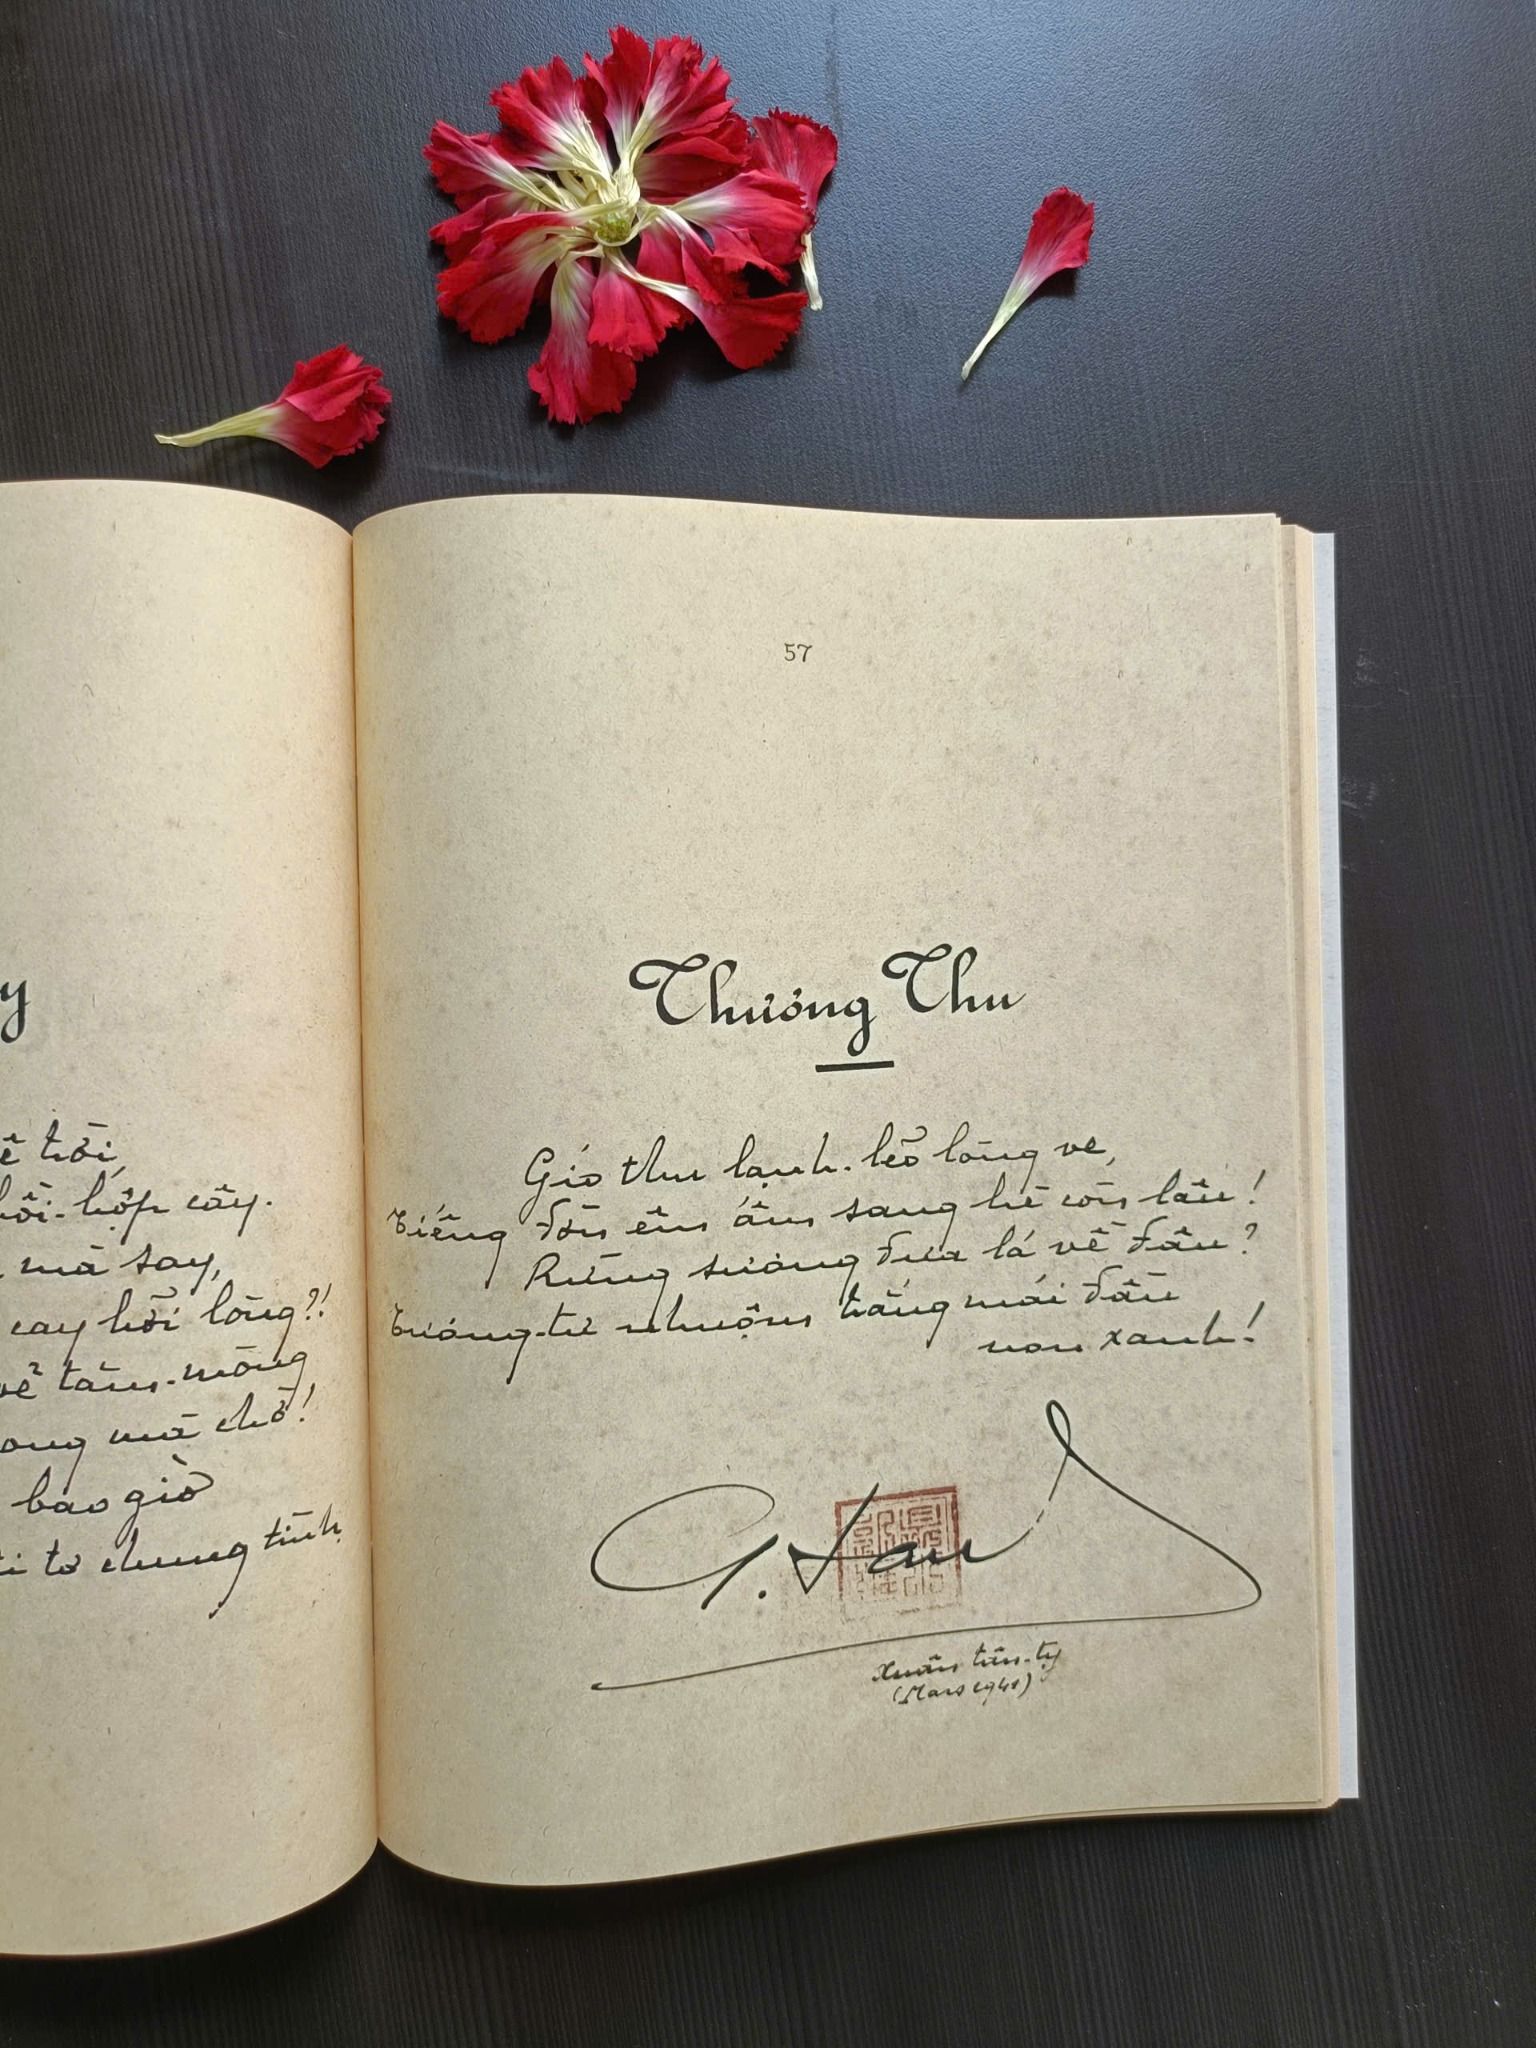 y
ề tôi,
hồi-hộp cây.
mà say,
cay hỡi lòng?!
về tầm-mông
ong mà chờ!
bao giờ
tơ chung tình
57
Thương Thu
Gió thu lạnh-lẽo lòng ve,
Tiếng đờn êm ấm sang hè còn lâu!
Rừng sương đưa lá về đâu?
Tương-tư nhuộm trắng mái đầu
non xanh!
Xuân tân-tỵ
(Mars 1941)